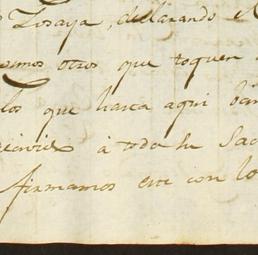 Lozaya, declarando el
otros que toquen
los que hasta aqui han
à toda su Sac
firmamos este con lo